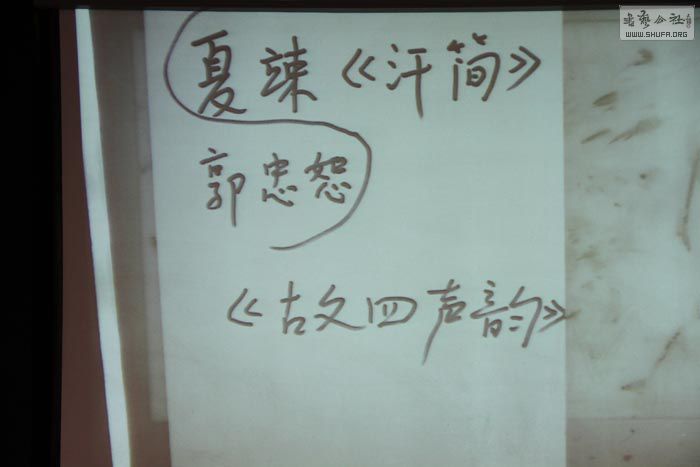 夏竦《汗简》
郭忠恕
《古文四声韵》
書藝公社
WWW.SHUFA.ORG